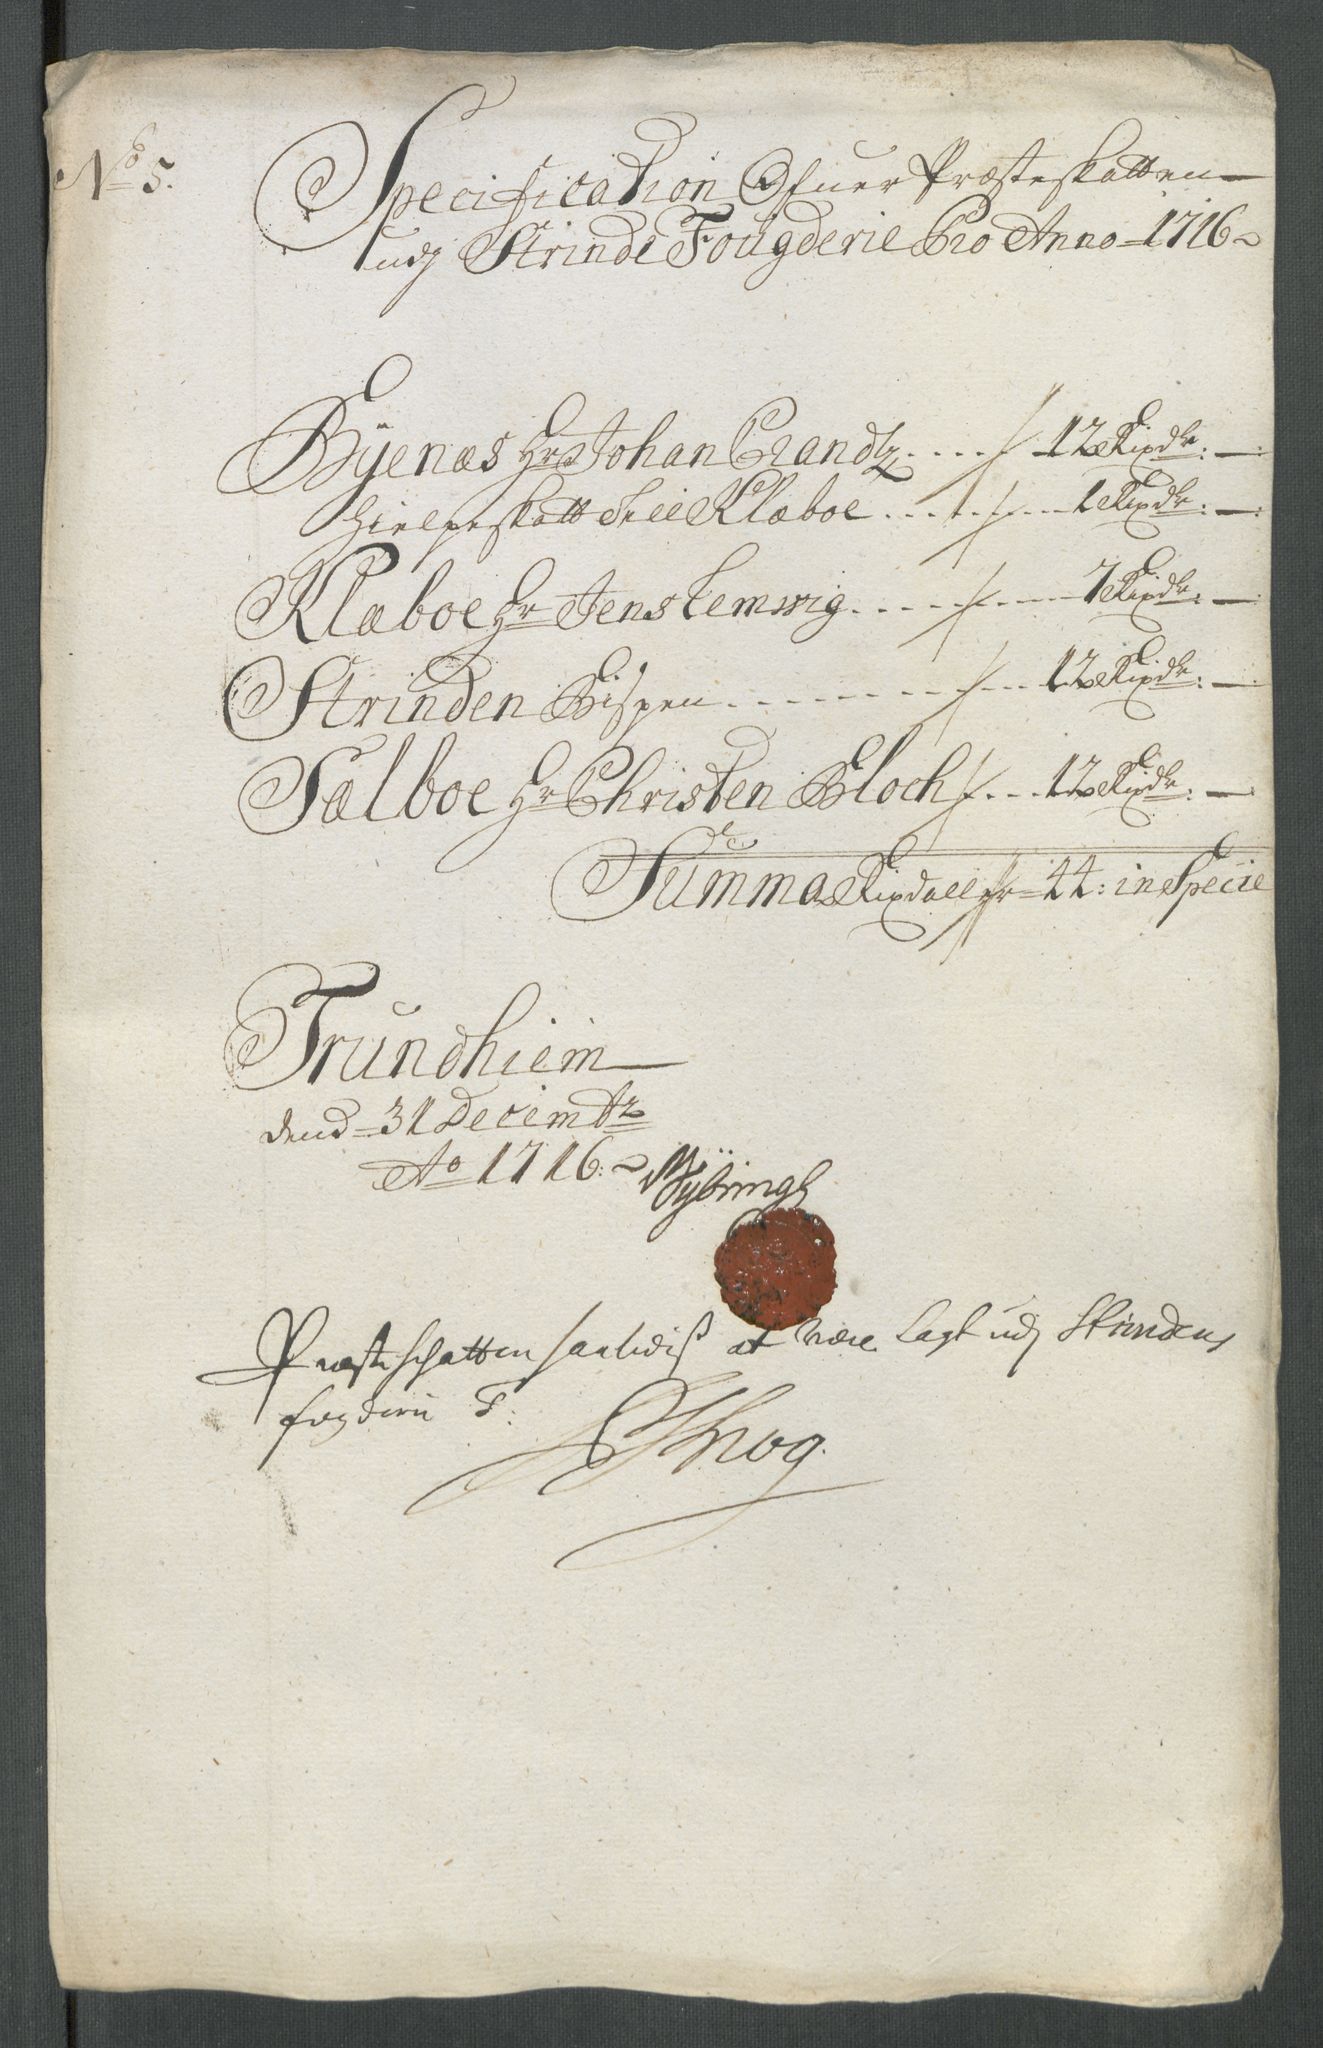 No 5.
Specification Ofuer Præsteskatten
udj Strinde Fougderie Pro Anno 1716
Byenæs Hr Johan Crandtz .... 12 Rixdr: —
Hielpeskatt till Klæboe ..... 1 Rixdr: —
Klæboe Hr Jens Lemwig ....... 7 Rixdr: —
Strinden Bispen ........ 12 Rixdr: —
Sælboe Hr Christen Bloch ... 12 Rixdr: —
Summa Rixdaller 44: in Specie
Trundhiem
dend 31 Decembr
Ao 1716.
Præsteschatten saaledis at være lagt udj Strindens
fogderie T: